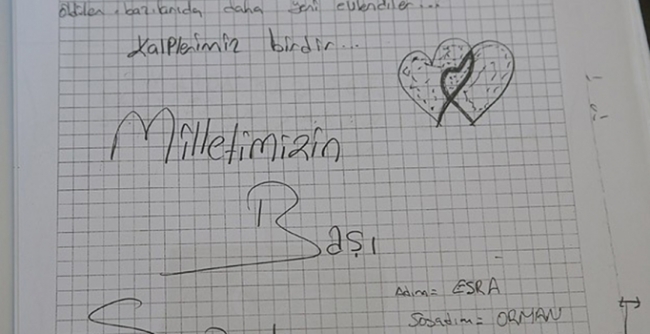 öldüler, bazılarıda daha yeni evlendiler...
Kalplerimiz birdir...
Milletimizin
Başı
Adım= ESRA
Soyadım= ORMAN